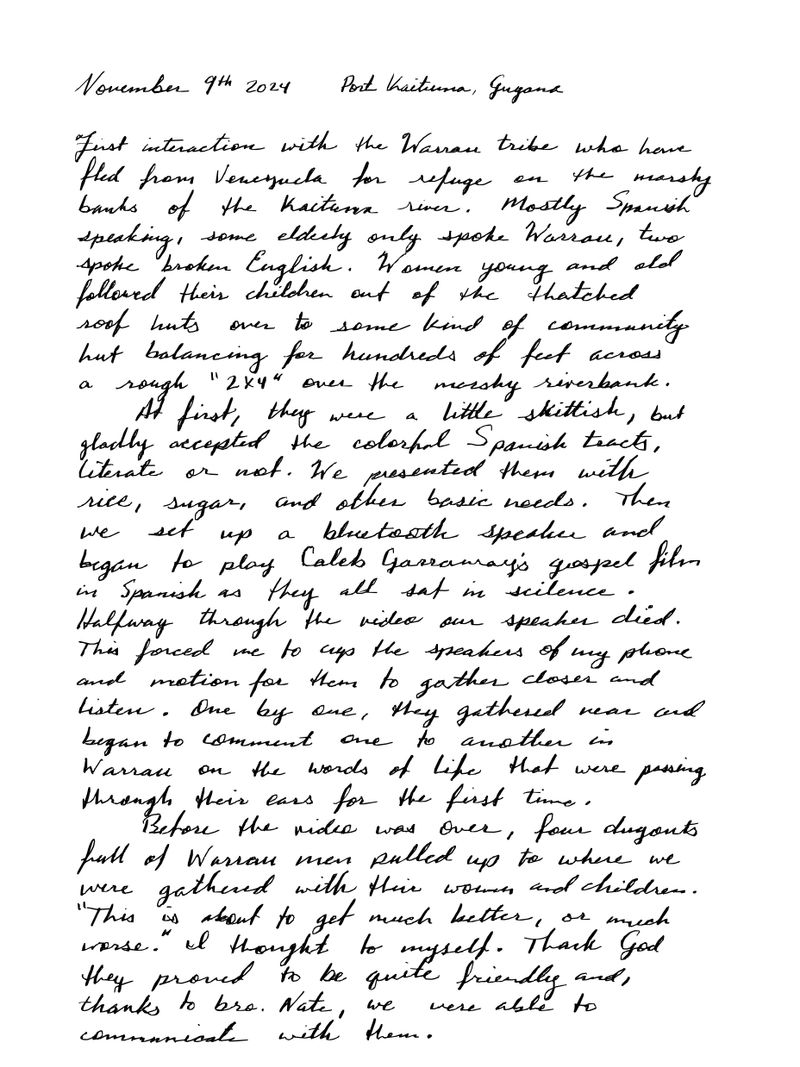 November 9th 2024 Port Kaituma, Guyana
"First interaction with the Warrau tribe who have
fled from Venezuela for refuge on the marshy
banks of the Kaituma river. Mostly Spanish
speaking, some elderly only spoke Warrau, two
spoke broken English. Women young and old
followed their children out of the thatched
roof huts over to some kind of community
hut balancing for hundreds of feet across
a rough "2x4" over the marshy riverbank.
At first, they were a little skittish, but
gladly accepted the colorful Spanish tracts,
literate or not. We presented them with
rice, sugar, and other basic needs. Then
we set up a bluetooth speaker and
began to play Caleb Garraway's gospel film
in Spanish as they all sat in scilence.
Halfway through the video our speaker died.
This forced me to cup the speakers of my phone
and motion for them to gather closer and
listen. One by one, they gathered near and
began to comment one to another in
Warrau on the words of life that were passing
through their ears for the first time.
Before the video was over, four dugouts
full of Warrau men pulled up to where we
were gathered with their women and children.
"This is about to get much better, or much
worse." I thought to myself. Thank God
they proved to be quite friendly and,
thanks to bro. Nate, we were able to
communicate with them.